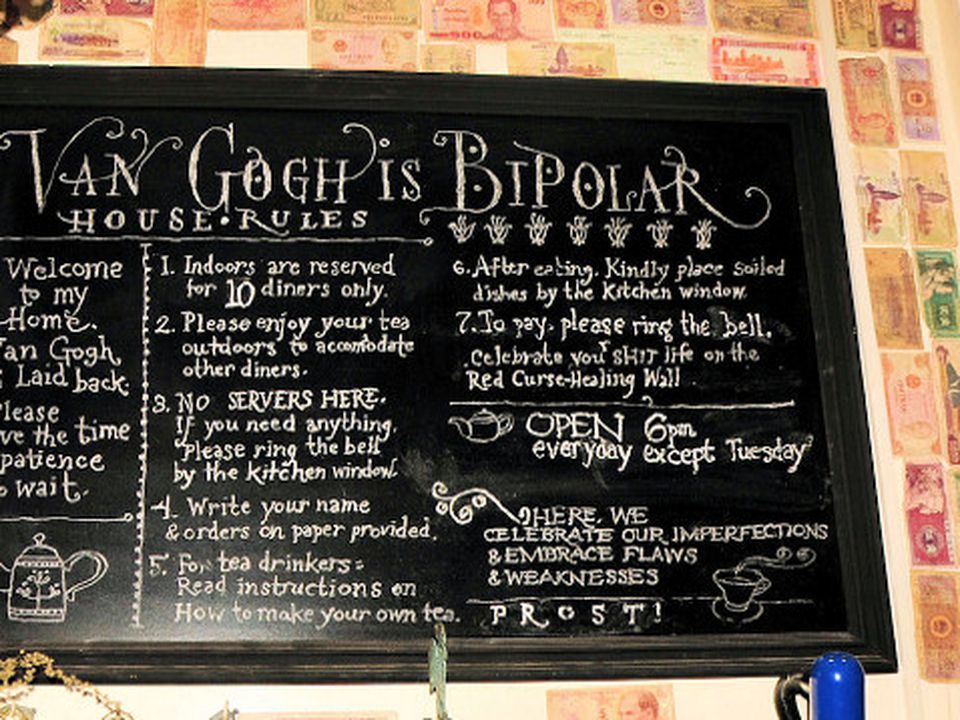 VAN GOGH IS BIPOLAR
HOUSE RULES
Welcome
to my
Home.
Van Gogh
is Laid back.
Please
have the time
patience
to wait.
1. Indoors are reserved
for 10 diners only.
2. Please enjoy your tea
outdoors to accomodate
other diners.
3. NO SERVERS HERE.
If you need anything,
Please ring the bell
by the kitchen window.
4. Write your name
& orders on paper provided.
5. For tea drinkers:
Read instructions on
How to make your own tea.
6. After eating. Kindly place soiled
dishes by the kitchen window.
7. To pay. please ring the bell.
Celebrate your SHIT life on the
Red Curse-Healing Wall
OPEN 6pm
everyday except Tuesday
HERE, WE
CELEBRATE OUR IMPERFECTIONS
& EMBRACE FLAWS
& WEAKNESSES
PROST!